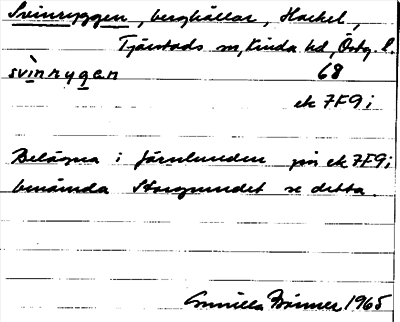 Svinryggen, berghällar, Hackel,
Tjärstads sn, Kinda hd, Östg. l.
svìnrygan 68
ek 7F9i
Belägna i Järnlunden på ek 7F9i
benämnda Storgrundet se detta.
Gunilla 1965